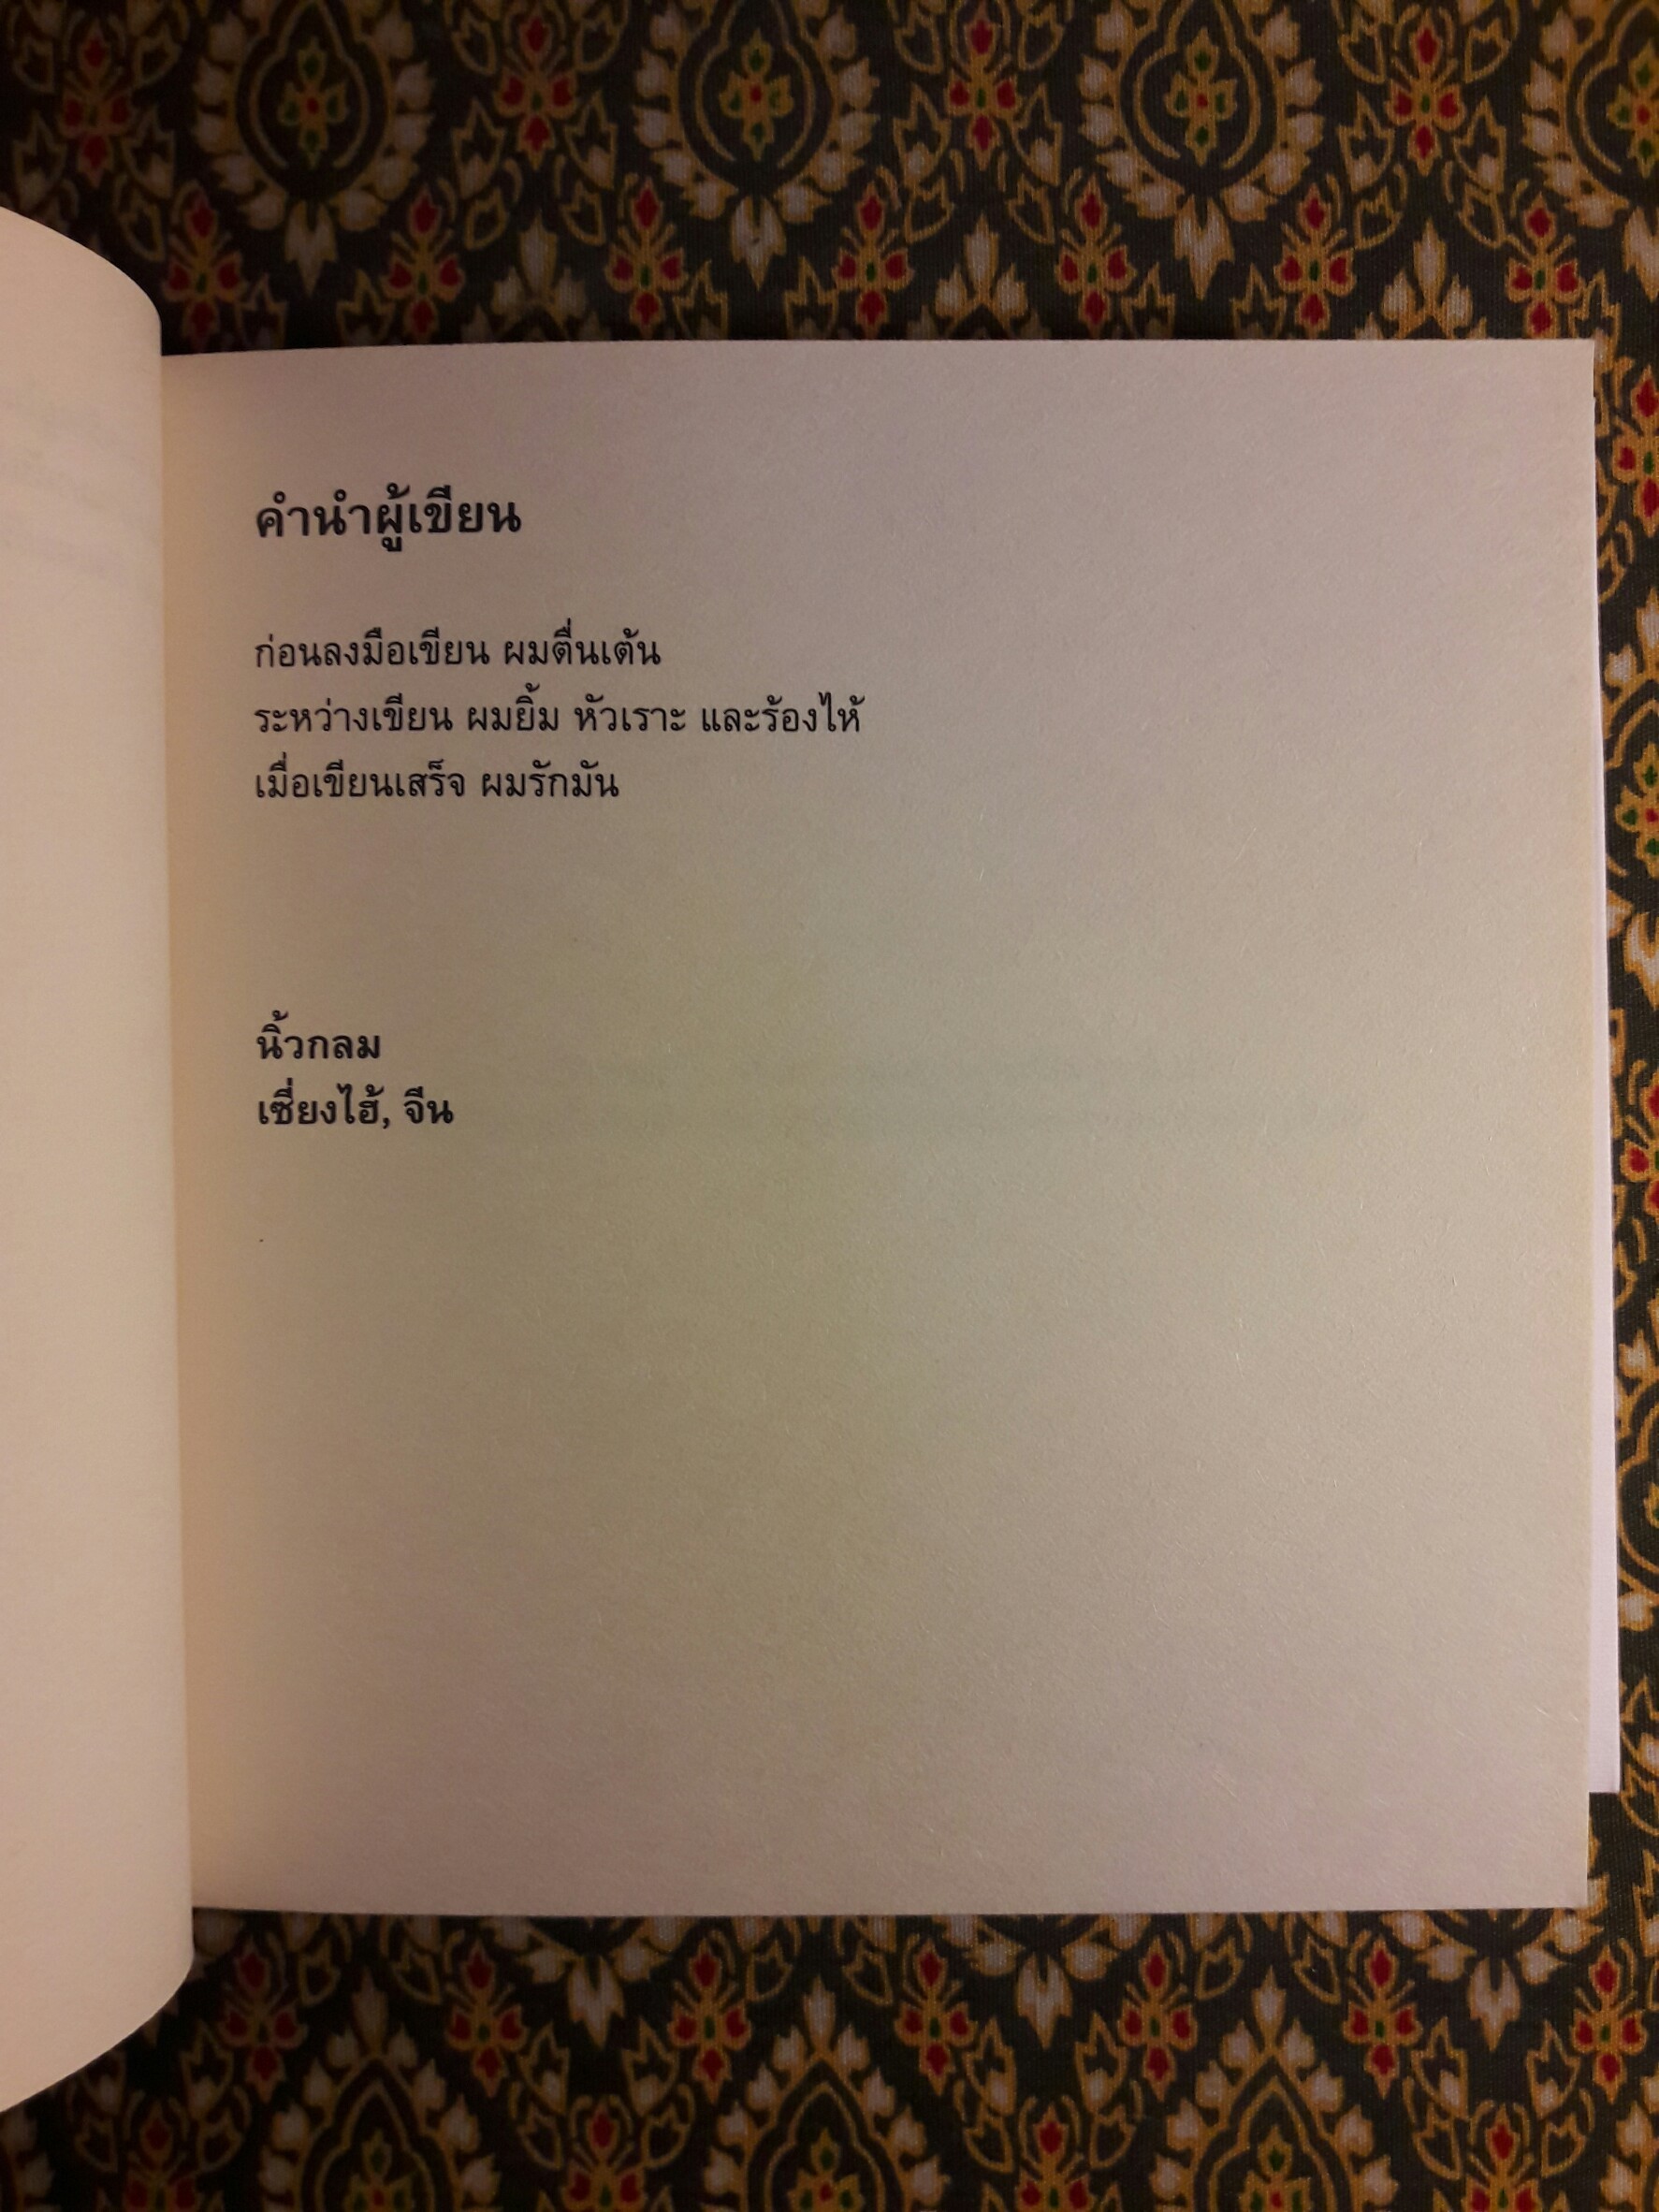 คำนำผู้เขียน
ก่อนลงมือเขียน ผมตื่นเต้น
ระหว่างเขียน ผมยิ้ม หัวเราะ และร้องไห้
เมื่อเขียนเสร็จ ผมรักมัน
นิ้วกลม
เซี่ยงไฮ้, จีน